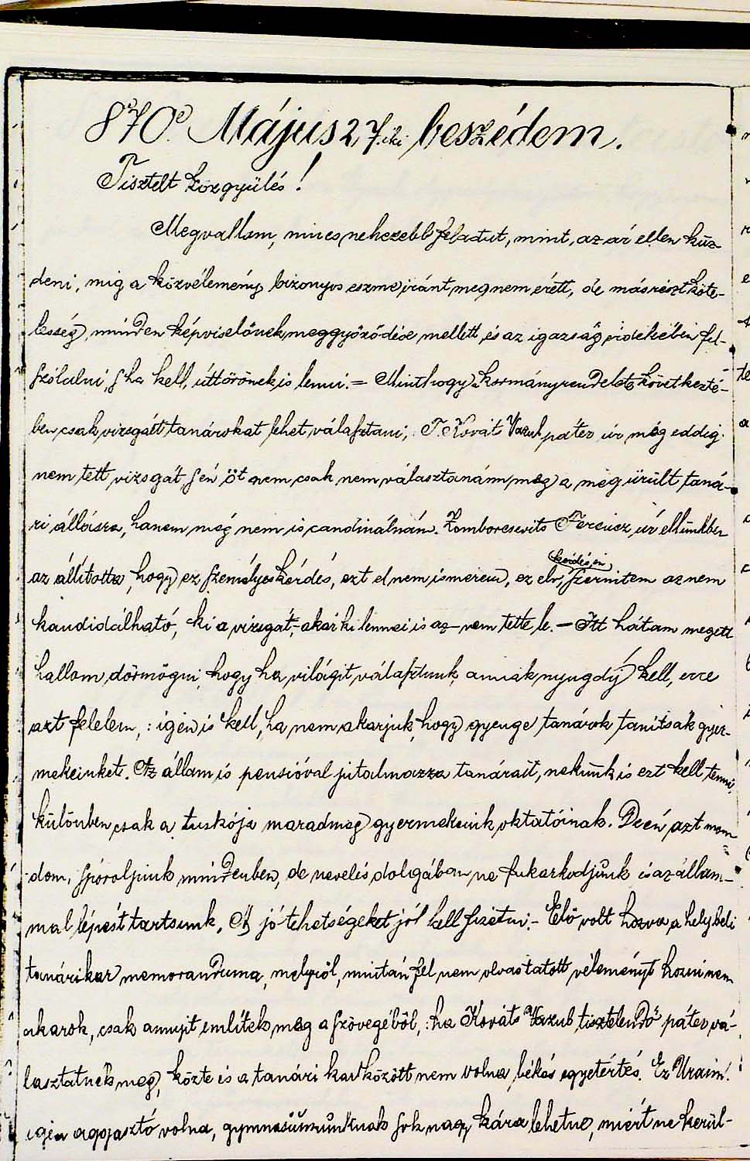 870 Május 27iki beszédem.
Tisztelt közgyülés!
Megvallom, nincs nehezebb feladat, mint, az ár ellen küz-
deni, mig a közvélemény bizonyos eszme iránt meg nem érett, de másrészt köte-
lesség, minden képviselőnek meggyőződése mellett, és az igazság érdekében fel-
szólalni, s ha kell, úttörőnek is lenni. = Minthogy kormányrendelete következté-
ben csak vizsgált tanárokat lehet választani, T. Kovát Vazul páter úr még eddig
nem tett vizsgát, s én őt nem csak nem választanám meg a meg ürült taná-
ri állásra, hanem még nem is candinálnám. Zomborcsevits Ferencz úr
az állította, hogy ez személyes kérdés, ezt el nem ismerem, ez elv kérdésem, szerintem az nem
kandidálható, ki a vizsgát, akárki lennei is az nem tette le. - Itt hátam megett
hallom dörmögni, hogy ha világit választunk, annak nyugdÿ kell, erre
azt felelem, : igen is kell, ha nem akarjuk, hogy gyenge tanárok tanítsák gyer-
mekeinket. Az állam is pensióval jutalmazza tanárait, nekünk is ezt kell tenni,
különben csak a tuskója marad meg gyermekeink oktatóinak. De én azt mon
dom, spóroljunk mindenben, de nevelés dolgában ne fukarkodjunk is az állam-
mal lépést tartsunk, A jó tehetségeket jól kell fizetni. - Elő volt hozva a helybeli
tanárikar memoranduma, melyről, miután fel nem olvastatott véleményt hozni nem
akarok, csak annyit említek meg a szövegéből, : ha Kováts Vazul tisztelendő páter vá-
lasztatnék meg, közte is a tanári kar között nem volna békés egyetértés. Ez Uraim!
igen aggasztó volna, gymnasiumunknak sok nagy kára lehetne, miért ne kerül-